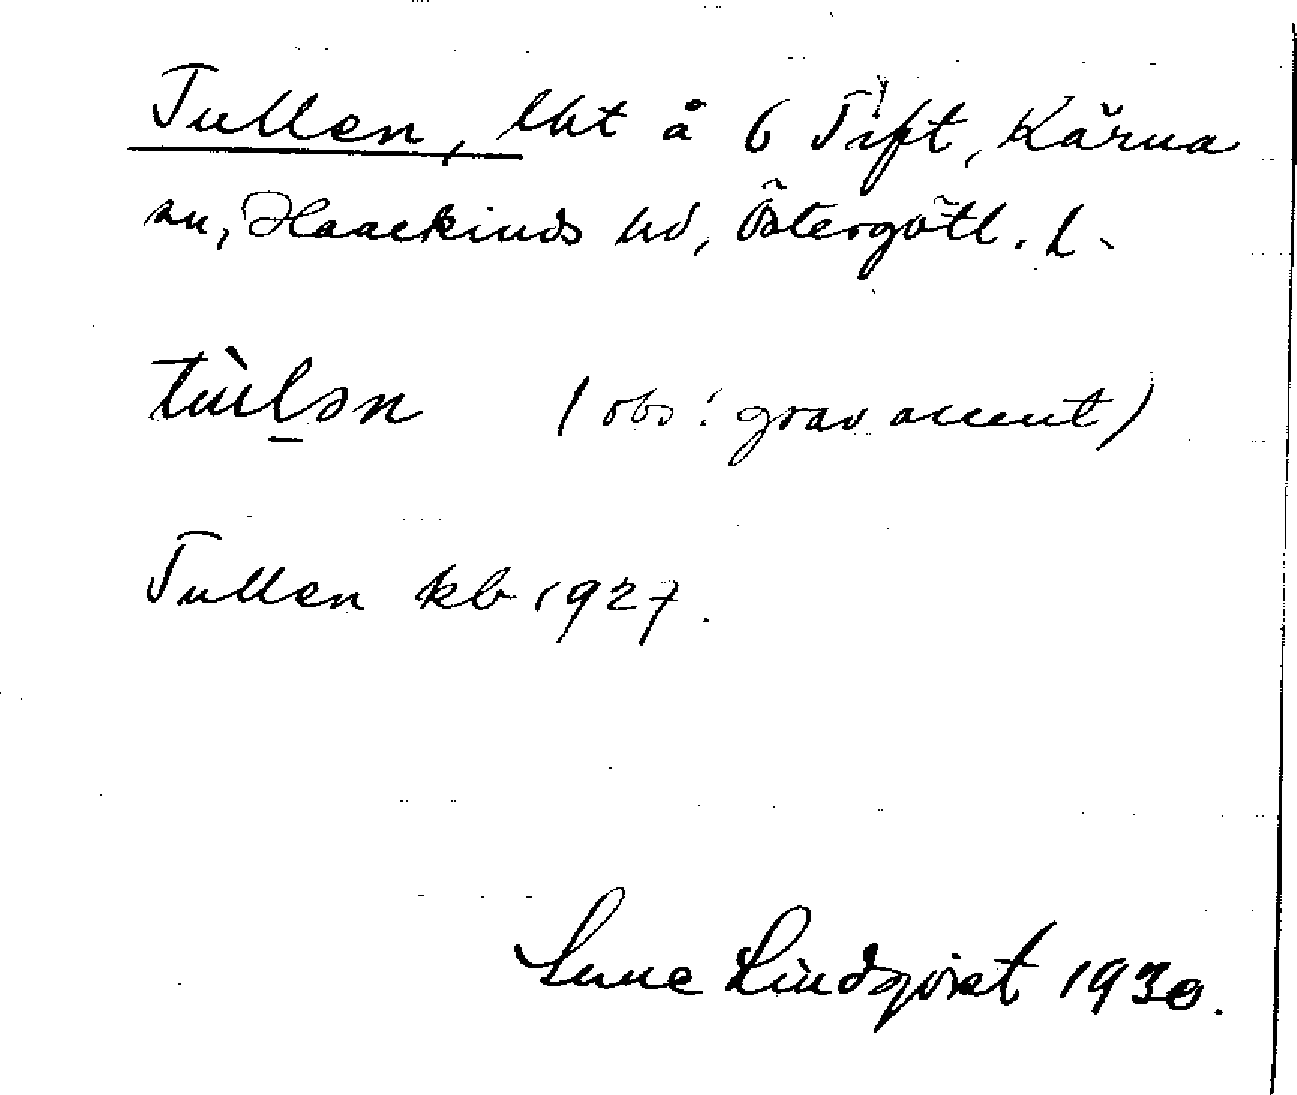 Tullen, lht å 6 Tift, Kärna
sn, Haanekinds hd, Östergötl. l.
tùlən (obs! grav accent)
Tullen kb 1927.
Sune Lindqvist 1930.